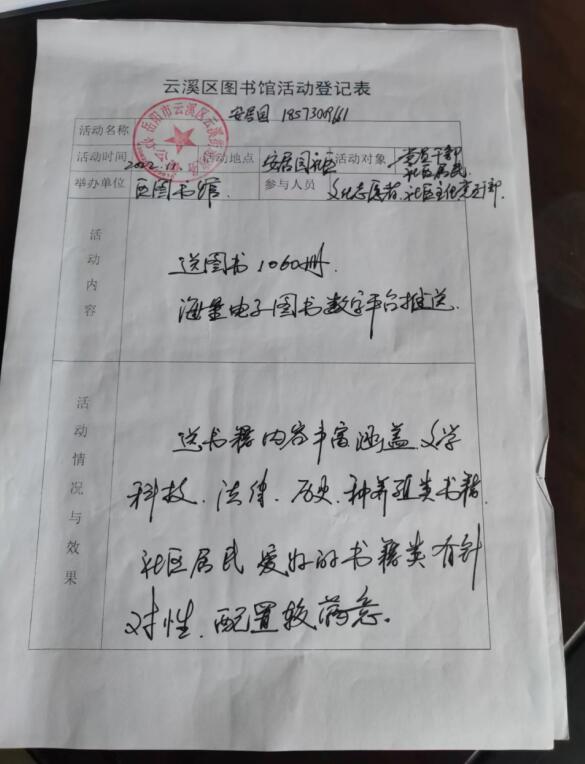 云溪区图书馆活动登记表
安居园
活动名称
活动时间 2022.11 活动地点 安居园社区 活动对象 党员干部 社区居民
举办单位 区图书馆 参与人员 文化志愿者、社区
活动内容
送图书1060册.
海量电子图书数字平台推送.
活动情况与效果
送书籍内容丰富涵盖文学
科技、法律、历史、种养殖类书籍.
社区居民爱好的书籍类有针
对性、配置较满意。